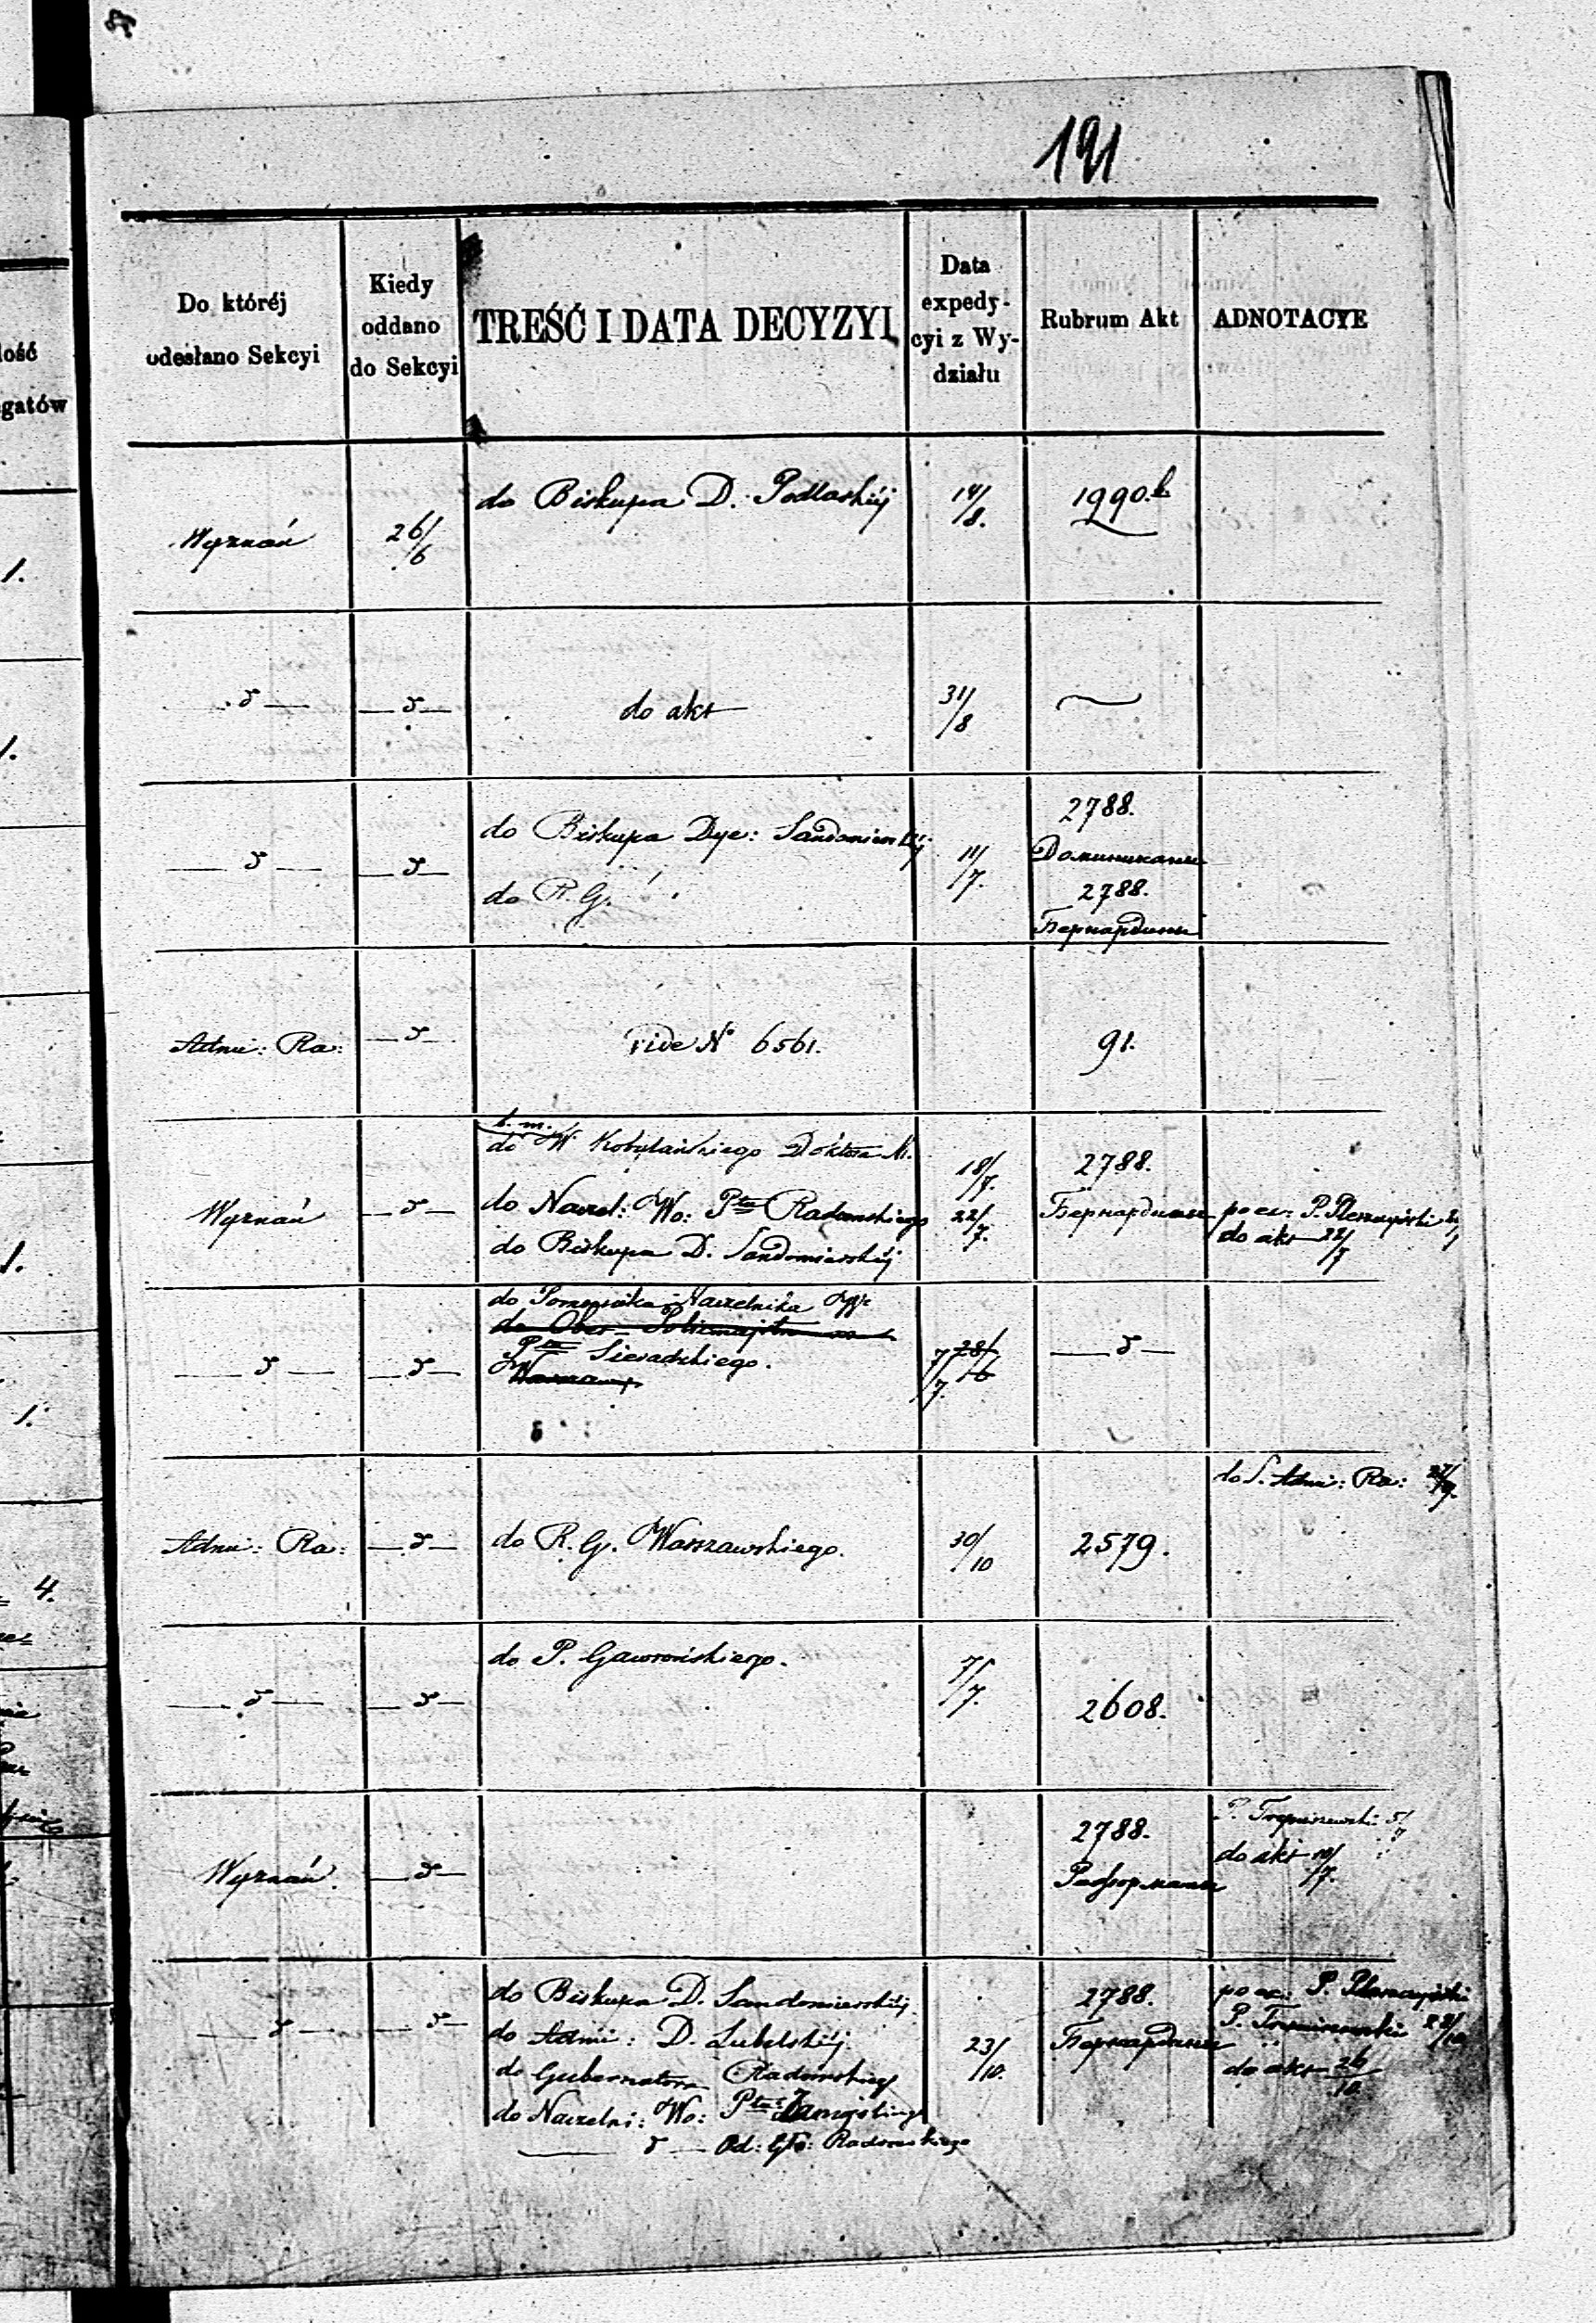 191
Do któréj
odesłano Sekcyi
Kiedy
oddano
do Sekcyi
TREŚĆ I DATA DECYZYI
Data
expedy-
cyi z Wy-
działu
Rubrum Akt
ADNOTACYE
lość
gatów
Wyznań
26/6
do Biskupa D. Podlaskiéj
14/8.
1990.b
1.
do akt
31/8
1.
do Biskupa Dye: Sandomierskiéj
do R. G.
11/7.
2788.
Доминикане
2788.
Бернардины
Admi: Ra:
vide No 6561.
91.
Wyznań
b. m.
do W. Kobylańskiego Doktora M.
do Naczel: Wo: Ptu Radomskiego
do Biskupa D. Sandomierskiéj
18/7.
22/7.
2788.
Бернардины
po ex: P.
do akt 22/7
1.
do Pomocnika Naczelnika
Ptu Sieradzkiego.
7/7.
28/6
1.
do S. Admi: Ra:
Admi: Ra:
do R. G. Warszawskiego.
30/10
2579.
4.
do P. Gaworońskiego.
7/7.
2608.
Wyznań.
2788.
Реформаты
P. 5/7
do akt 10/7.
do Biskupa D. Sandomierskiéj
do Admi: D. Lubelskiéj
do Gubernatora Radomskieg
do Naczelni: Wo: Ptu
Od: Gb: Radomskiego
23/10.
2788.
Бернардины
po ex: P.
P. 22/10
do akt 26/10.